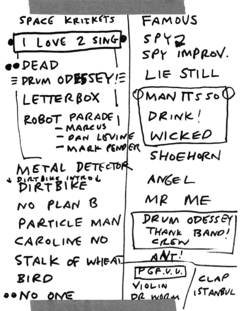 SPACE KRICKETS
I LOVE 2 SING
DEAD
DRUM ODESSEY!
LETTERBOX
ROBOT PARADE
- MARCUS
- DAN LEVINE
- MARK PENDER
METAL DETECTOR
↓ DIRTBIKE INTRO ↓
DIRTBIKE
NO PLAN B
PARTICLE MAN
CAROLINE NO
STALK OF WHEAT
BIRD
NO ONE
FAMOUS
SPY 2
SPY IMPROV.
LIE STILL
MAN ITS SO
DRINK!
WICKED
SHOEHORN
ANGEL
MR ME
DRUM ODESSEY
THANK BAND!
CREW
ANT!
P.G.F.V.V.
VIOLIN
DR WORM
CLAP
ISTANBUL